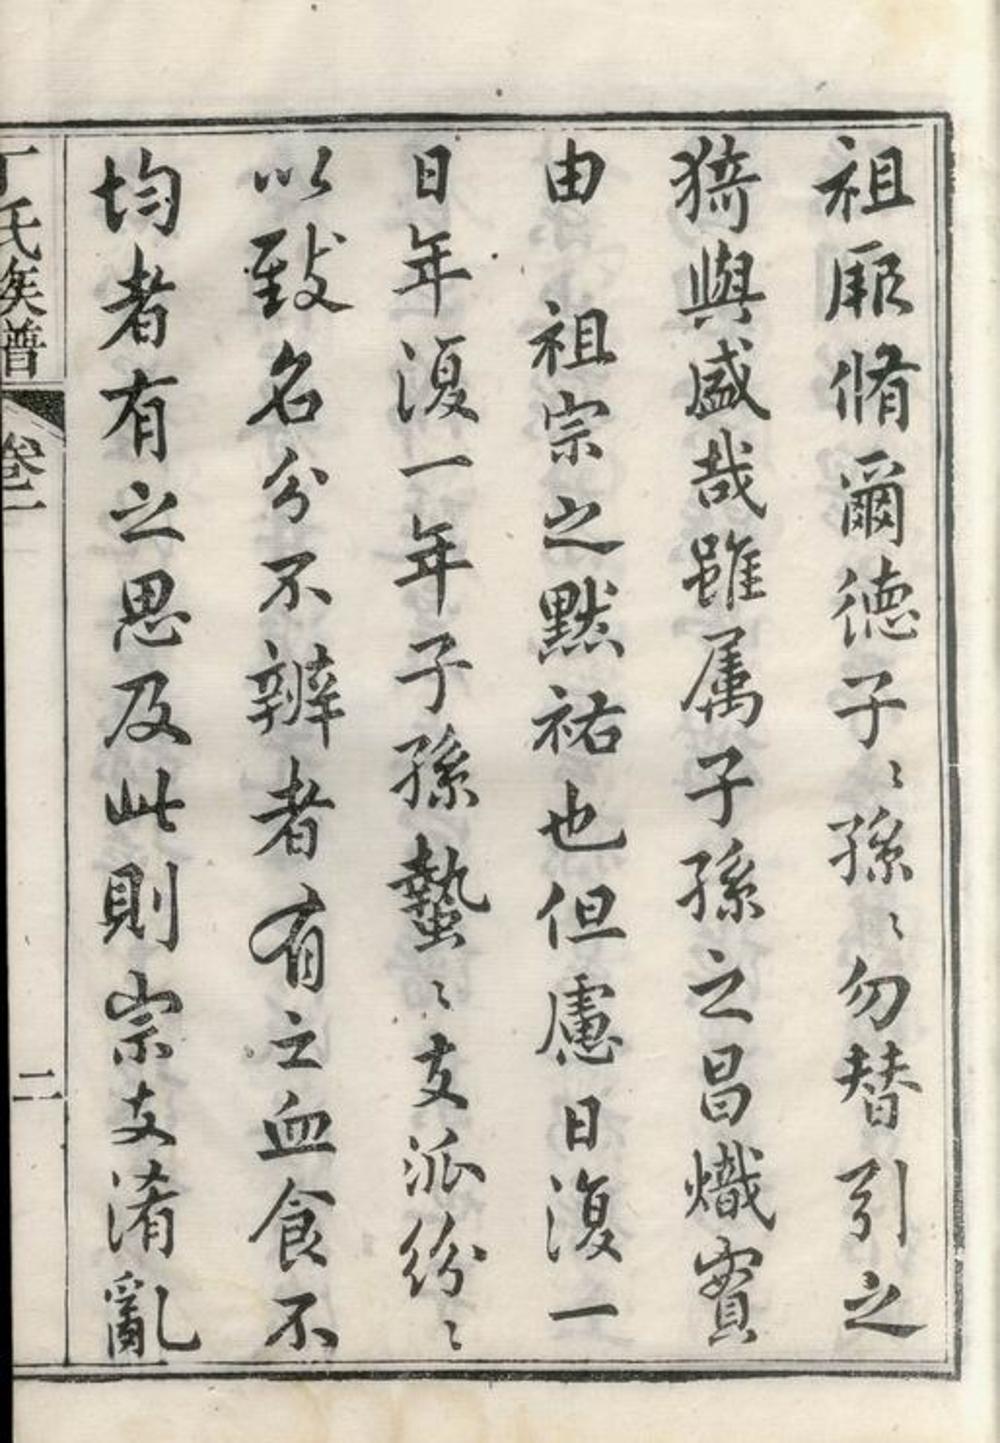 祖聿脩爾德子〻孫〻勿替引之
猗與盛哉雖属子孫之昌熾實
由 祖宗之默祐也但慮日復一
日年復一年子孫蟄〻支派紛〻
以致名分不辨者有之血食不
均者有之思及此則宗支淆亂
丁氏族譜 卷二 二